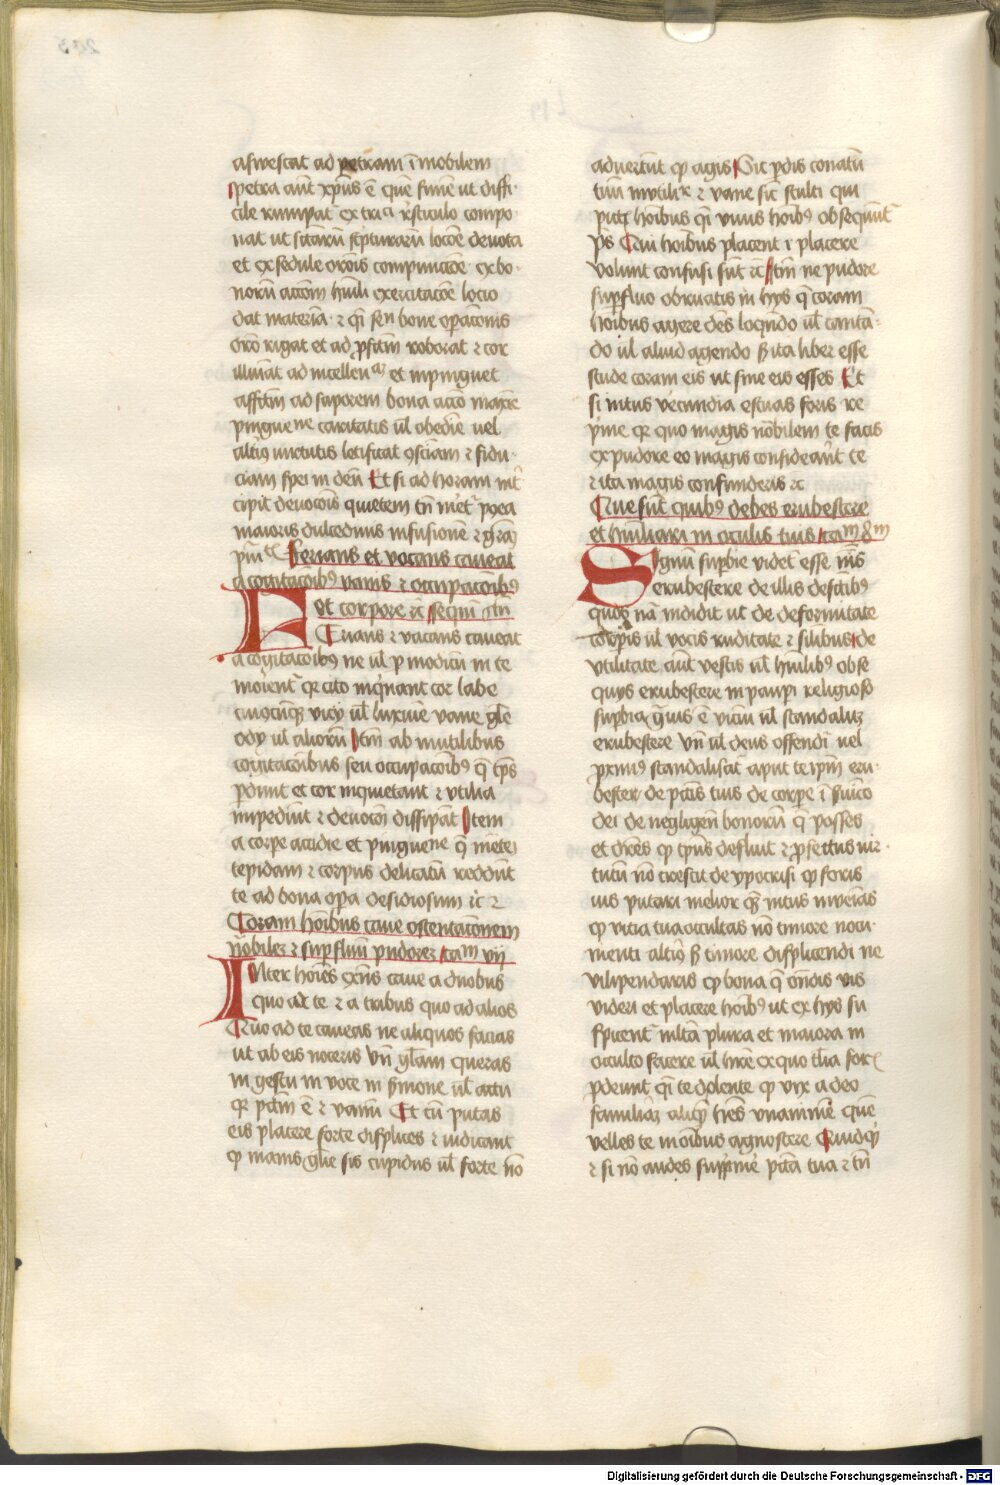 aswescat ad petram īmobilem
petra aūt xp̄us ē quē sime ut diffi
cile rumpat̉ ex tri
nat ut sctārū sc̄pturarū locōe deuota
et ex sedule orōis compunctōe ex bo
norū acctōm hūili exercitacōe
dat materia ꝛ q̄i bone oꝑatōnis
orō rigat et ad ꝓfctm̄ roborat ꝛ cor
illuīat ad intellen et inpinguet
affctm̄ ad saporem bona acco
pingue caritatis ul̄ obedie uel
altiꝰ uirtutis letificat ꝯsciam ꝛ fidu
ciam spei in deū Et si ad horam int̉
cipit deuocōis quietem tn̄ postea
maioris dulcedinis infusionē ꝛ grām
Ferians et vocans caueat
a cogitacōibꝰ vanis ꝛ occupacōibꝰ
et corpore ⁊c
Eruans ꝛ vacans caueat
a cogitacōibꝰ ne ul̄ ꝑ modicū in te
morent̉ qꝛ cito inqͥnant cor labe
cuiuscūqꝫ vicy ul̄ luxurie vane gl̄e
ody ul̄ aliorū Itm̄ ab inutilibus
cogitacōnibus seu occupacōibꝰ q̄ tp̄s
ꝑdūnt et cor inquietant ꝛ vtilia
impediūt ꝛ deuocōm dissipāt Item
a corpe accidie et pinguene
tepidam ꝛ corpus delicatū reddūt
te ad bona oꝑa desidiosum ⁊c
Coram hoībus caue ostentacōnem
nobilez ꝛ suꝑfluū pudorez ca\u1d50 vij
INter hoīes exn̄s caue a duobus
quo ad te ꝛ a tribus quo ad alios
Quo ad te caueas ne aliquos facias
ut ab eis noteris vn̄ gl̄am queras
in gestu in voce in s̄mone ul̄ actu
qꝛ pctm̄ ē ꝛ vanū Et cū putas
eis placere forte displices ꝛ iudicant
ꝙ inanis gl̄ie sis cupidus ul̄ forte nō
aduertūt ꝙ agis Sic ꝑdis conatū
tuū inutilit̉ ꝛ vane sic stulti qui
hoībus q̄i viuis hoībꝰ obsequūt̉
p̄s Qui hoībus placent ꝛ placere
volunt confusi sūt ⁊c Itm̄ ne pudore
suꝑfluo obruatis in hys q̄ coram
hoībus agere debes loquēdo ul̄ canta
do ul̄ aliud agendo sꝫ ita liber esse
stude coram eis ut sine eis esses Et
si intus vecundia estuas foris re
p̄me qꝛ quo magis nobilem te facis
ex pudore eo magis considerāt te
ꝛ ita magis confunderis ⁊c
Que sūt quibꝰ debes erubescere
et hūiliari in oculis tuis ca\u1d50 8\u1d50
Signū suꝑbie videt̉ esse nīs
erubescere de illis defctībꝰ
quos nā indidit ut de deformitate
corꝑis ul̄ vocis ruditate ꝛ siībus de
vtilitate aūt vestis ul̄ hūilibꝰ obse
quys erubescere in pauꝑi religioso
suꝑbia qͣuis ē viciū ul̄ scandaluz
erubescere vn̄ ul̄ deus offendit̉ uel
ꝓximꝰ scandalisat̉ aput te ip̄m eru
bescer̉ de pctīs tuis de corꝑe ī suicō
dei de negligen̄ bonorū q̄ posses
et dices ꝙ tp̄us defluit ꝛ ꝓfectus uir
tutū nō crescit de ypocrisi ꝙ foris
uis putari melior qͣꝫ intus inuenias
ꝙ vitia tua occultas nō timore nocu
menti altiꝰ sꝫ timore displicendi ne
vilipendaris ꝙ bona q̄ ondis vis
videri et placere hoībꝰ ut ex hys su
spicent̉ multa plura et maiora in
occulto facere ul̄ hr̄e ex quo tlia for\u1d49
ꝑdeunt q̄ te dolente ꝙ vix adeo
familiar̉ aliqͣ hēs vnanimē quē
velles te in oībus agnoscere Quidqͥ
ꝛ si nō audes suꝑprime pctā tua ꝛ tn̄
Digitalisierung gefördert durch die Deutsche Forschungsgemeinschaft - DFG